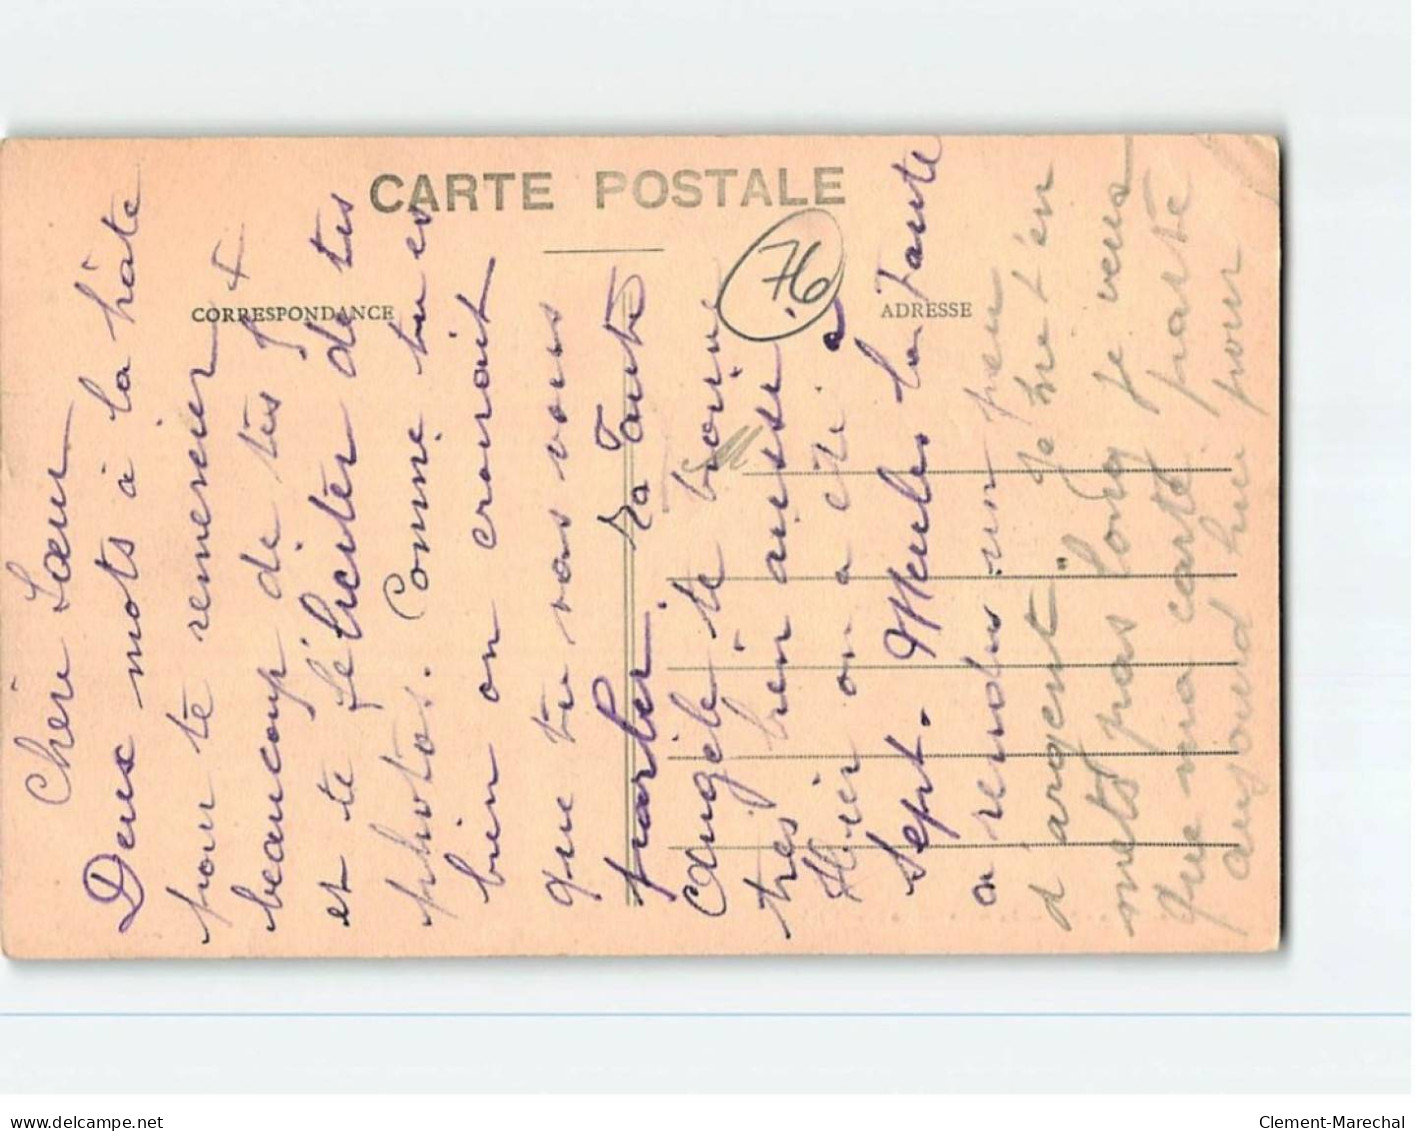 CARTE POSTALE
CORRESPONDANCE
ADRESSE
76
Chère Sœur
Deux mots à la hâte
pour te remercier
beaucoup de tes
et te féliciter de tes
photos. Comme tu es
bien on croirait
que tu vas vous
parler. La Tante
Angèle te trouve
très bien aussi.
Hier on a été à
Sept. Meules la Tante
a rendu un peu
d argent. Je ne t'en
mets pas long je veus
que ma carte parte
aujourd hui pour
delcampe.net
Clement-Marechal